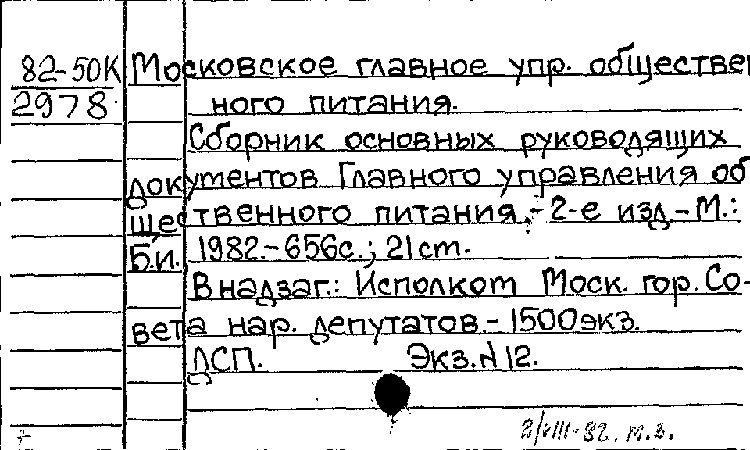 82-50К Московское главное упр. обществен
2978 ного питания.
Сборник основных руководящих
документов Главного управления об
щественного питания, - 2-е изд. - М.:
Б.и. 1982. - 656с.; 21 cm.
В надзаг.: Исполком Моск. гор. Со-
вета нар. депутатов. - 1500 экз.
ДСП. Экз. N 12.
2/VIII-82. м.з.